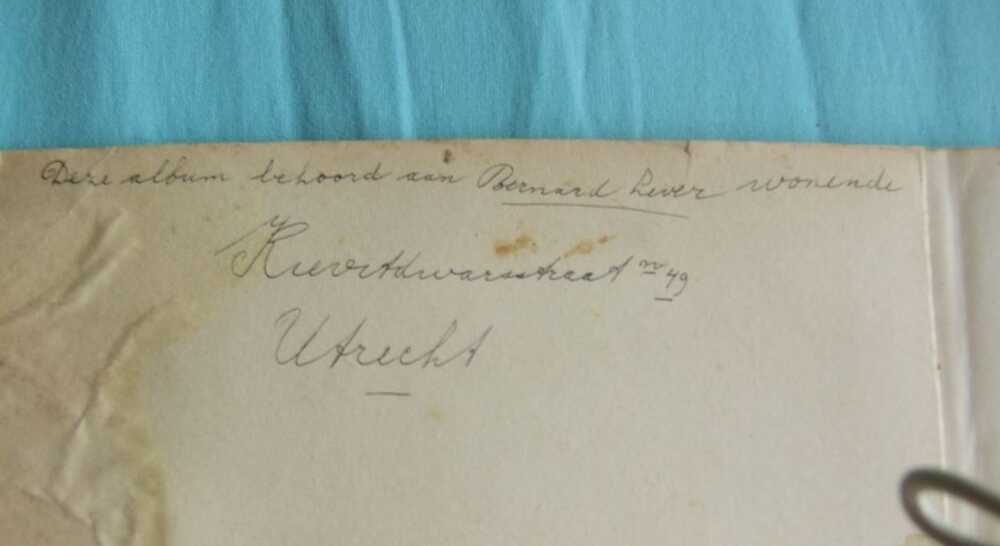 Deze album behoord aan Bernard Lever wonende
Kievitdwarsstraat no 49
Utrecht